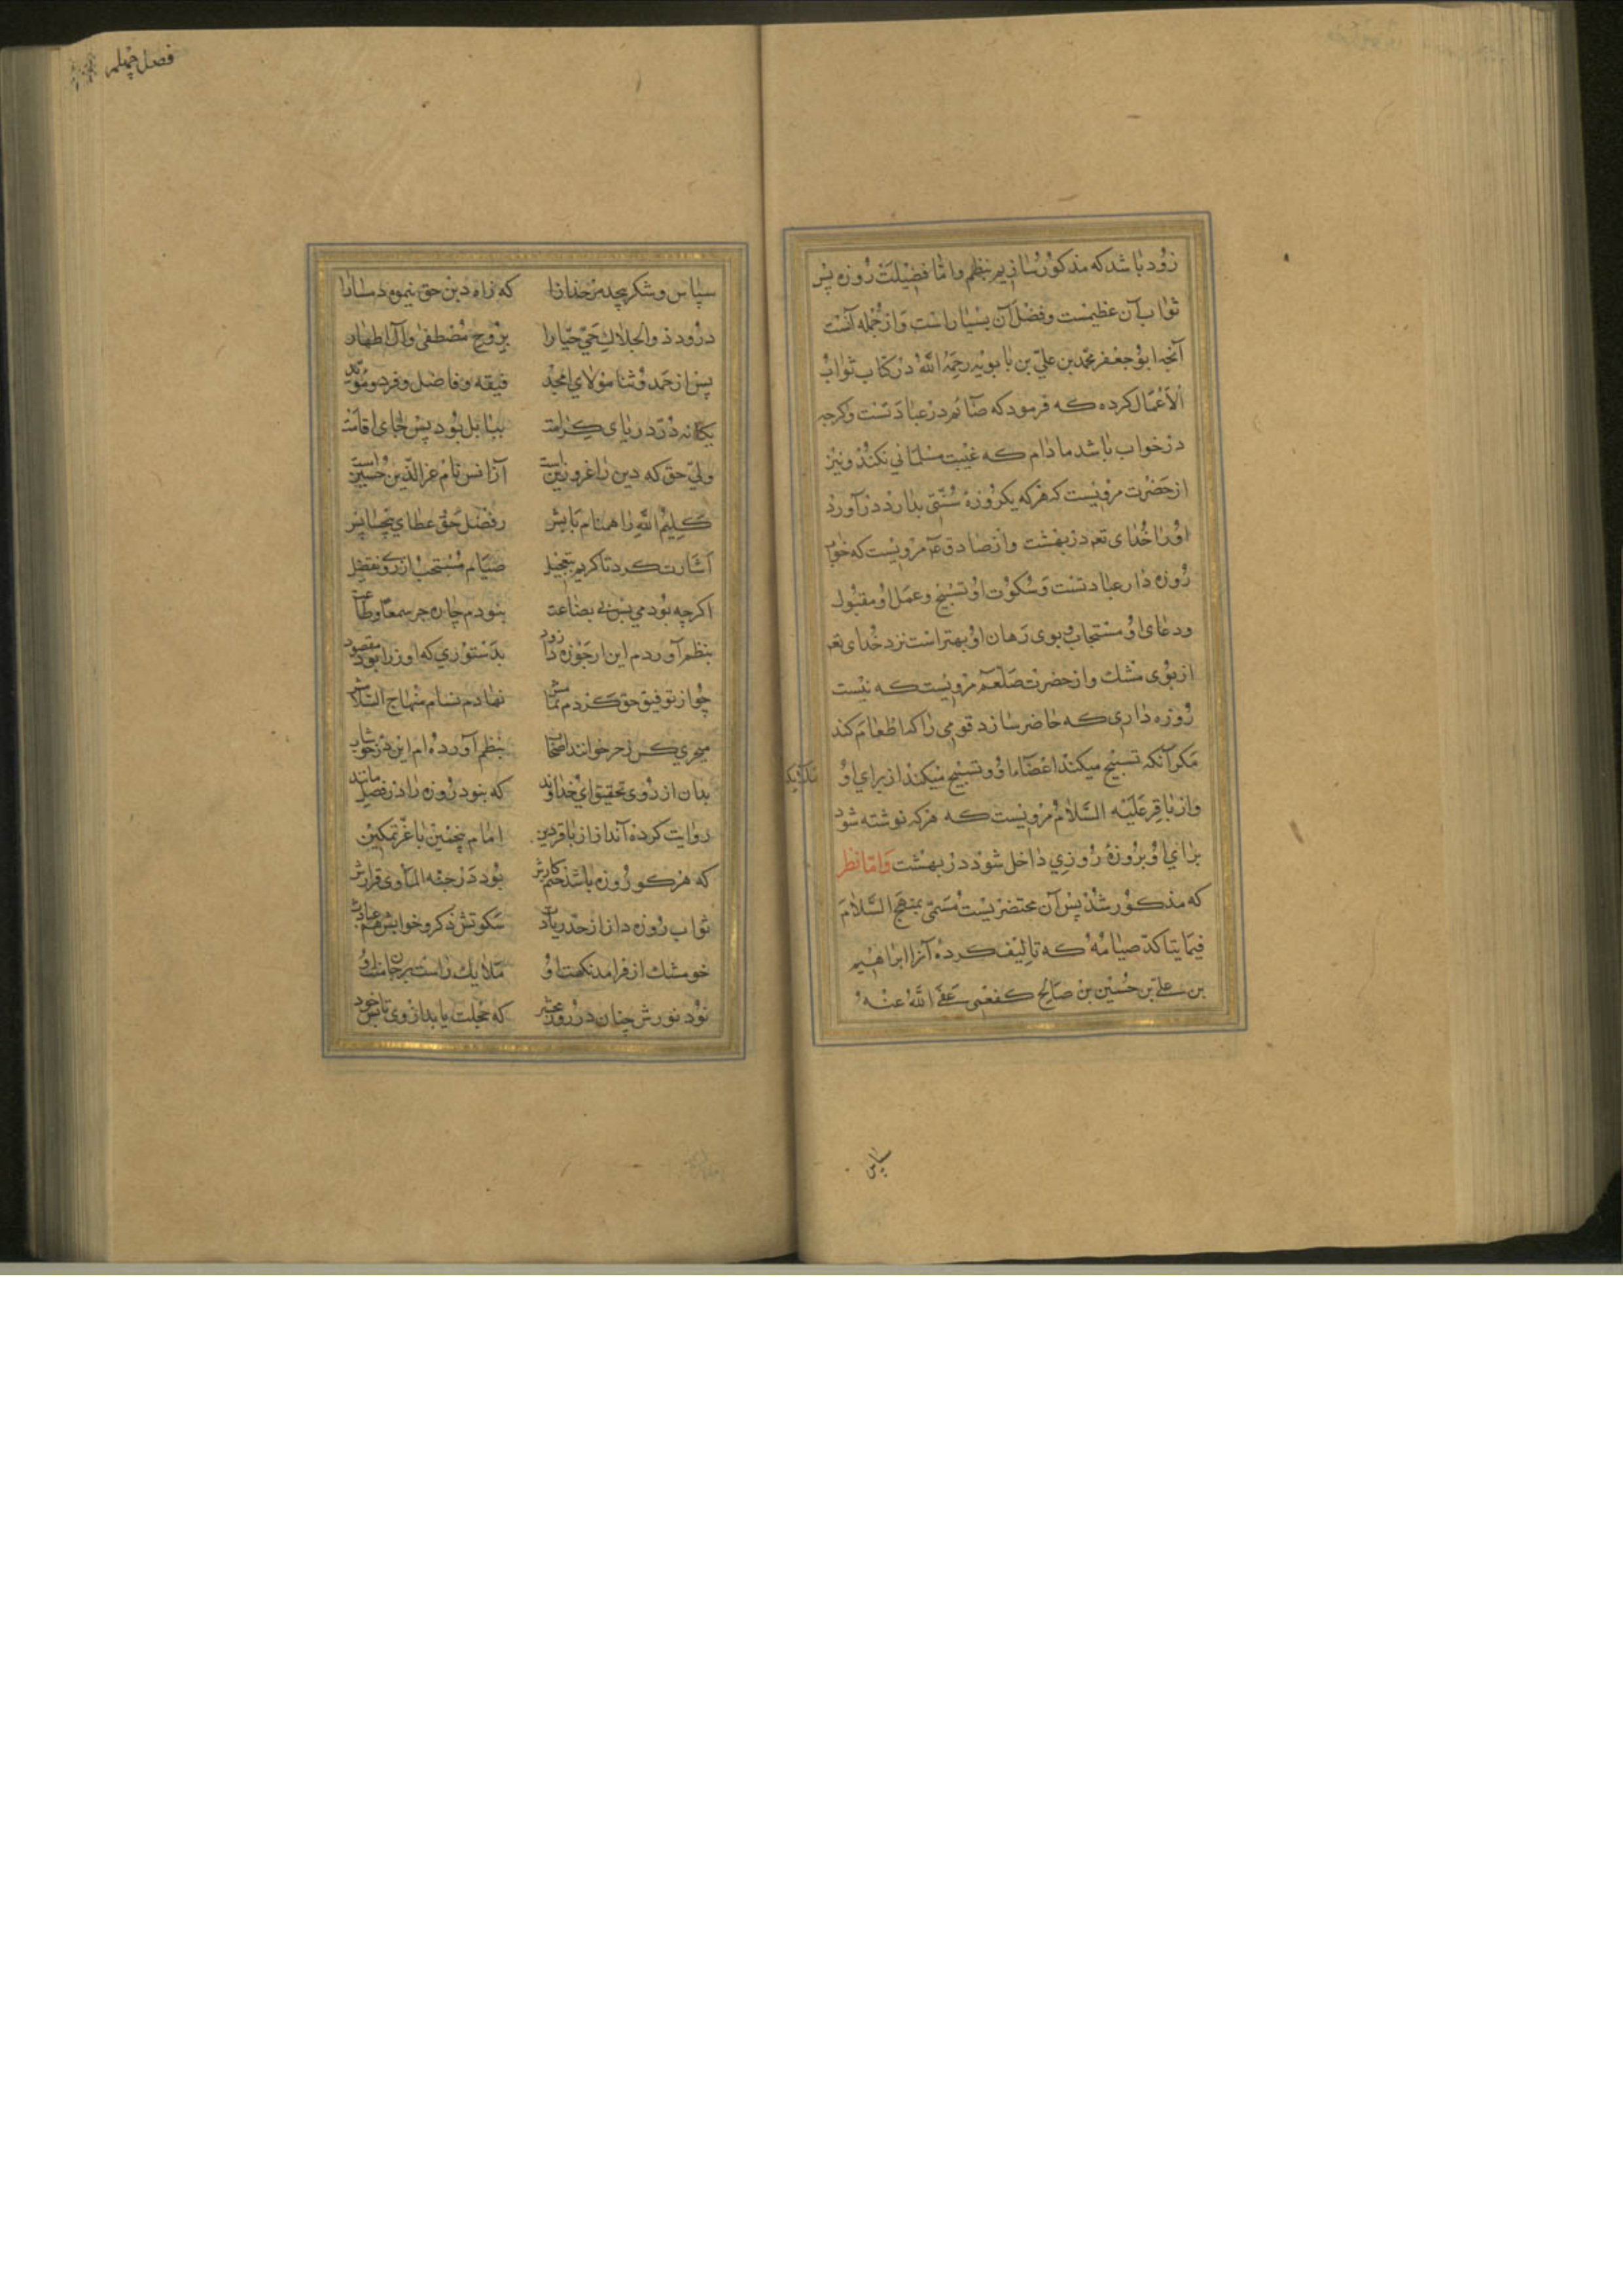 زود باشد که مذکور سازیم بنظم واما فضیلت روزه پس
ثواب آن عظیمست وفضل آن بسیار است واز جمله آنست
آنچه ابو جعفر محمد بن علی بن بابویه رحمه الله در کتاب ثواب
الاعمال کرده که فرمود که صائم در عبادتست وکرچه
در خواب باشد مادام که غیبت مسلمانی نکند ونیز
از حضرت مرویست که هر که یکروزه سنتی بدارد در آورد
اورا خدای تعه در بهشت واز صادق عم مرویست که خواب
روزه دار عبادتست وسکوت او تسبیح وعمل او مقبول
ودعای او مستجاب وبوی دهان او بهتر است نزد خدای تعه
از بوی مشک واز حضرت صلعم مرویست که نیست
روزه داری که حاضر سازد قومی را که اطعام کند
مکر آنکه تسبیح میکند اعضاء او وتسبیح میکند از برای او
واز باقر علیه السلام مرویست که هر که نوشته شود
برای او بروزه روزی داخل شود در بهشت واما نظر
که مذکور شد پس آن مختصریست مسمی بمنهج السلام
فیما یتاکد صیامه که تالیف کرده آنرا ابراهیم
بن علی بن حسین بن صالح کفعمی عفی الله عنه
سپاس
فصل چهلم
سپاس وشکر بیحد مر خدا را که راه دین حق بنمود ما را
درود ذو الجلال حی جبارا بروح مصطفی وآل اطهار
پس از حمد وثنا مولای امجد فقیه وفاضل وفرد ومؤید
یکانه در دریای کرامت ببابل بود پس جای اقامت
ولی حق که دین را غر وزین است آزانس نام عز الدین حسین است
کلیم الله را همنام بابش زفضل حق عطای بیحسابش
اشارت کرد تا کریم بتعجیل صیام مستحب از رو تفضیل
اکرچه بودمی بس بی بضاعت نبودم چاره جز سمعا وطاعت
بنظم آوردم این ارجوزه را زود بدستوری که اورا بود مقصود
چو از توفیق حق کردم تمامش نهادم نام منهاج السلامش
بنظم آورده ام این در خوشاب
بدان از روی تحقیق ای خداوند که نبود روزه را در فضل مانند
روایت کرده اند از باقر دین امام پنجمین با عز تمکین
که هر کو روزه باشد ختم کارش بود در جنة الماوی قرارش
ثواب روزه دار از حد زیادت سکوتش ذکر وخوابش هم عبادت
خوشتر از مشک نکهت او ملایک راست
بود نورش چنان در روز محشر که خجلت یابد از وی تابش خور